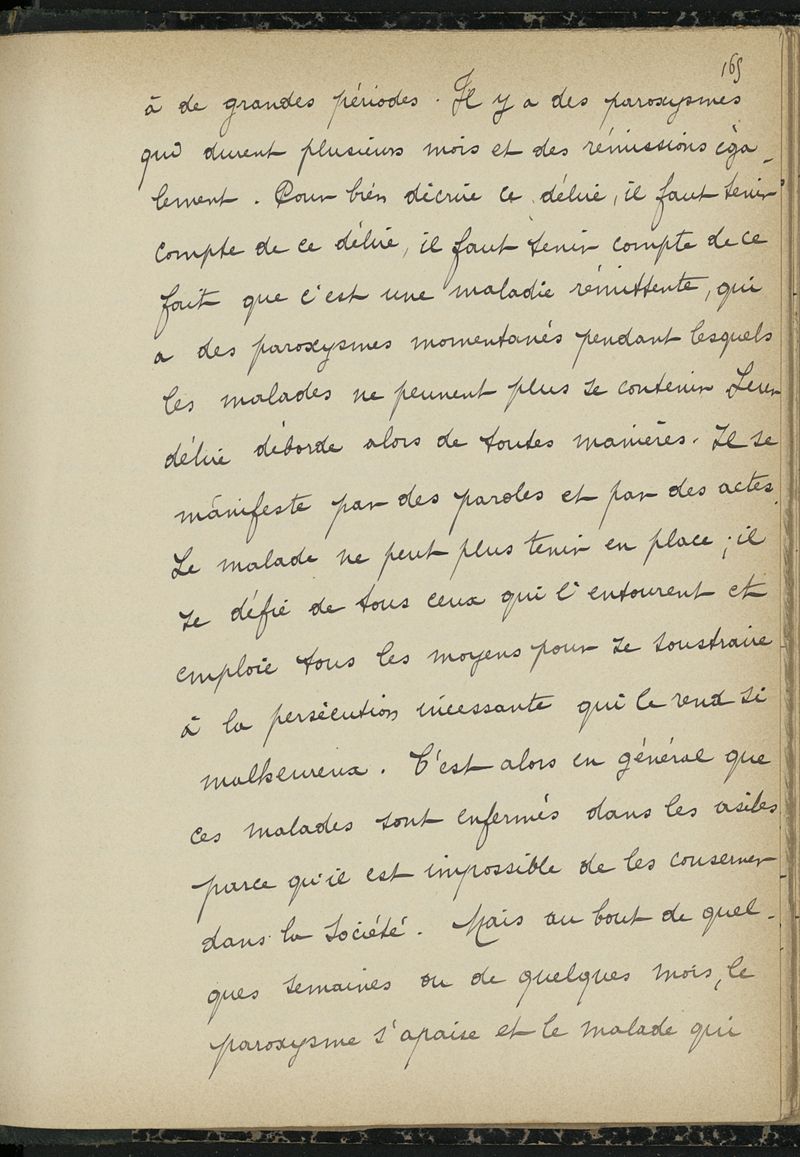 165
à de grandes périodes. Il y a des paroxysmes
qui durent plusieurs mois et des rémissions éga-
lement. Pour bien décrire ce délire, il faut tenir
compte de ce délire, il faut tenir compte de ce
fait que c'est une maladie rémittente, qui
a des paroxysmes momentanés pendant lesquels
les malades ne peuvent plus se contenir Leur
délire déborde alors de toutes manières. Il se
manifeste par des paroles et par des actes.
Le malade ne peut plus tenir en place ; il
se défie de tous ceux qui l'entourent et
emploie tous les moyens pour se soustraire
à la persécution incessante qui le rend si
malheureux. C'est alors en général que
ces malades sont enfermés dans les asiles
parce qu'il est impossible de les conserver
dans la société. Mais au bout de quel-
ques semaines ou de quelques mois, le
paroxysme s'apaise et le malade qui